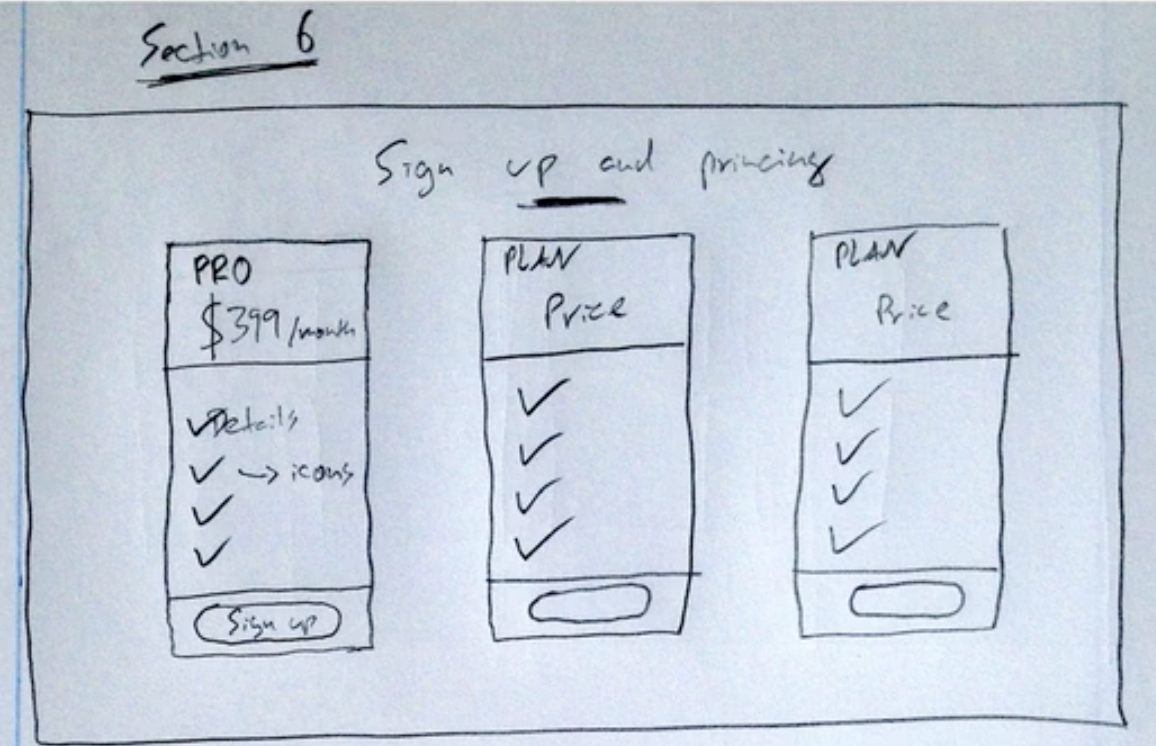 Section 6
Sign up and princing
PRO
$399/month
Details
→ icons
Sign up
PLAN
Price
PLAN
Price